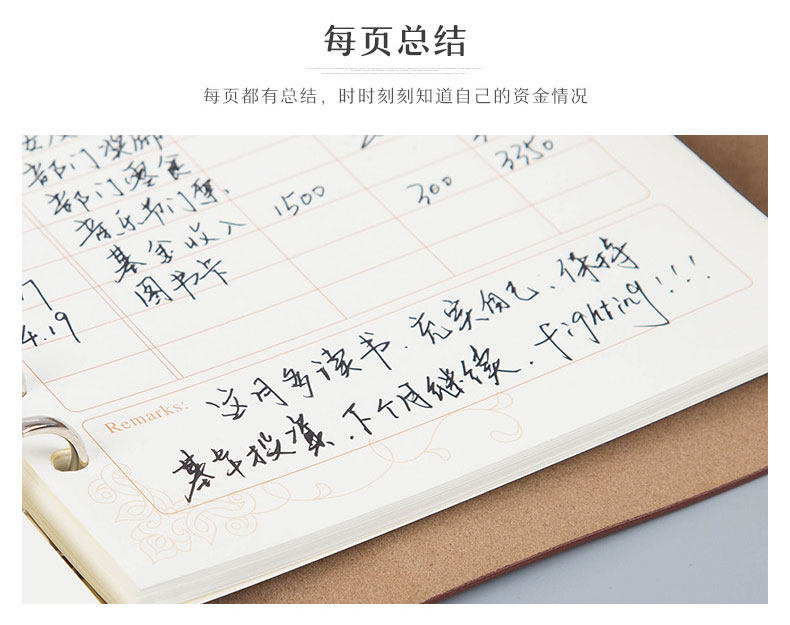 每页总结
每页都有总结，时时刻刻知道自己的资金情况
部门零食
音乐节门票 1500 300 3350
基金收入
图书卡
4.19
Remarks: 这月多读书、充实自己、保持
基本投资、下个月继续、fighting!!!!